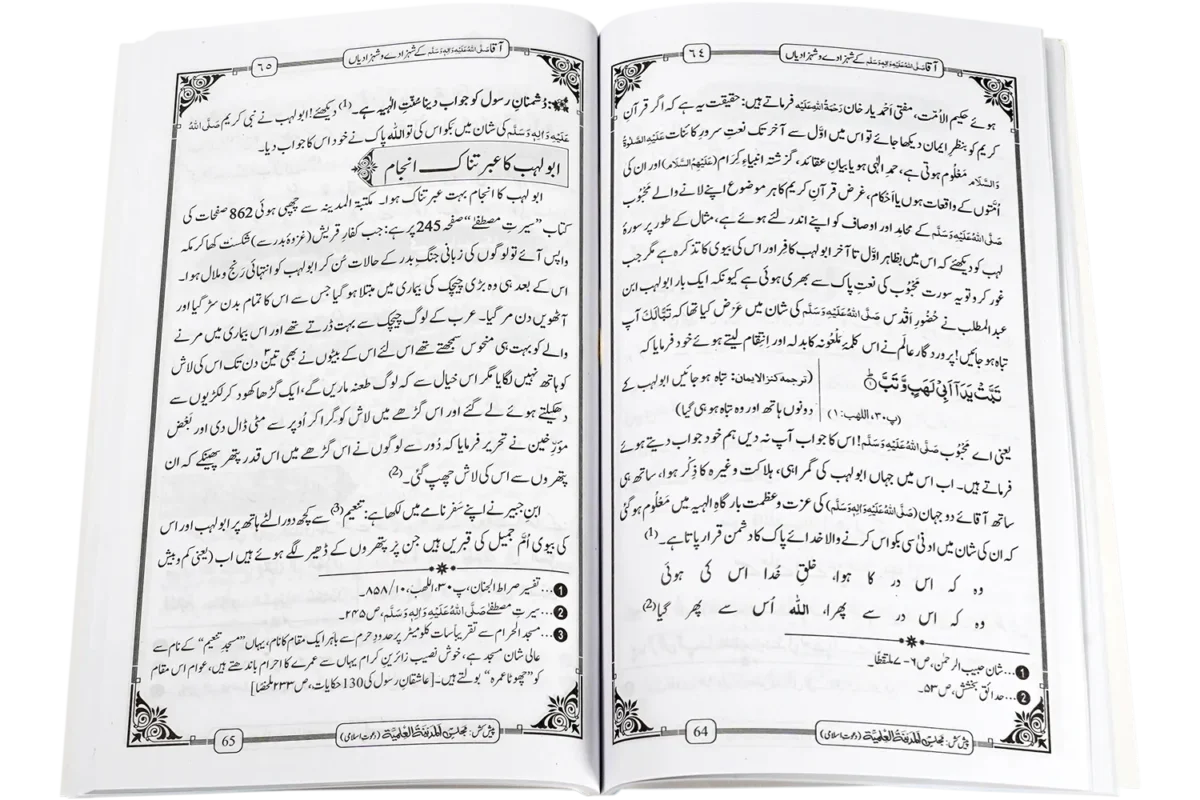 ٦٤
آقا صَلَّی اللّٰهُ عَلَیْهِ وَاٰلِهٖ وَسَلَّم کے شہزادے و شہزادیاں
ہوئے حکیم الاُمّت، مفتی احمد یار خان رَحْمَةُ اللّٰهِ عَلَیْه فرماتے ہیں: حقیقت یہ ہے کہ اگر قرآنِ
کریم کو بنظرِ ایمان دیکھا جائے تو اس میں اوّل سے آخر تک نعتِ سرورِ کائنات عَلَیْهِ الصَّلٰوةُ
وَالسَّلَام معلُوم ہوتی ہے، حمدِ الٰہی ہو یا بیانِ عقائد، گزشتہ انبیاءِ کِرام (عَلَیْهِمُ السَّلَام) اور ان کی
اُمّتوں کے واقعات ہوں یا اَحکام، غرض قرآنِ کریم کا ہر موضوع اپنے لانے والے محبُوب
صَلَّی اللّٰهُ عَلَیْهِ وَسَلَّم کے محامِد اور اوصاف کو اپنے اندر لئے ہوئے ہے، مثال کے طور پر سورۂ
لہب کو دیکھئے کہ اس میں بظاہر اوّل تا آخر ابو لہب کافِر اور اس کی بیوی کا تذکرہ ہے مگر جب
غور کرو تو یہ سورت محبُوب کی نعتِ پاک سے بھری ہوئی ہے کیونکہ ایک بار ابو لہب ابنِ
عبدالمطلب نے حُضُورِ اَقْدَس صَلَّی اللّٰهُ عَلَیْهِ وَسَلَّم کی شان میں عَرْض کیا تھا کہ تَبًّالَكَ آپ
تباہ ہو جائیں! پروردگارِ عالَم نے اس کلِمۂ مَلْعُونہ کا بدلہ اور اِنتِقام لیتے ہوئے خود فرمایا کہ
تَبَّتْ یَدَاۤ اَبِیْ لَهَبٍ وَّ تَبَّ ؕ(۱)
(پ۳۰، اللهب: ۱)
(ترجمہ کنز الایمان: تباہ ہو جائیں ابو لہب کے
دونوں ہاتھ اور وہ تباہ ہو ہی گیا)
یعنی اے محبُوب صَلَّی اللّٰهُ عَلَیْهِ وَسَلَّم! اس کا جواب آپ نہ دیں ہم خود جواب دیتے ہوئے
فرماتے ہیں۔ اب اس میں جہاں ابو لہب کی گمراہی، ہلاکت وغیرہ کا ذِکْر ہوا، ساتھ ہی
ساتھ آقائے دو جہان (صَلَّی اللّٰهُ عَلَیْهِ وَاٰلِهٖ وَسَلَّم) کی عزت و عظمت بارگاہِ الٰہیہ میں معلُوم ہو گئی
کہ ان کی شان میں ادنٰی سی بکواس کرنے والا خدائے پاک کا دشمن قرار پاتا ہے۔(1)
وہ کہ اس در کا ہوا، خلقِ خُدا اس کی ہوئی
وہ کہ اس در سے پھرا، اللہ اُس سے پھر گیا(2)
1...شانِ حبیب الرحمٰن، ص۶-۷ ملتقطًا۔
2...حدائقِ بخشش، ص۵۳۔
64
پیش کش: مجلس اَلْمَدِیْنَةُ الْعِلْمِیَّة (دعوتِ اسلامی)
٦٥
آقا صَلَّی اللّٰهُ عَلَیْهِ وَاٰلِهٖ وَسَلَّم کے شہزادے و شہزادیاں
: دُشمنانِ رسول کو جواب دینا سُنّتِ الٰہیہ ہے۔(1) دیکھئے! ابو لہب نے نبی کریم صَلَّی اللّٰهُ
عَلَیْهِ وَاٰلِهٖ وَسَلَّم کی شان میں بکواس کی تو اللہ پاک نے خود اس کا جواب دیا۔
ابو لہب کا عبرتناک انجام
ابو لہب کا انجام بہت عبرتناک ہوا۔ مکتبۃ المدینہ سے چھپی ہوئی 862 صفحات کی
کتاب ”سیرتِ مصطفےٰ“ صفحہ 245 پر ہے: جب کفارِ قریش (غزوۂ بدر سے) شکست کھا کر مکہ
واپس آئے تو لوگوں کی زبانی جنگِ بدر کے حالات سُن کر ابو لہب کو انتہائی رَنْج و ملال ہوا۔
اس کے بعد ہی وہ بڑی چیچک کی بیماری میں مبتلا ہو گیا جس سے اس کا تمام بدن سڑ گیا اور
آٹھویں دن مر گیا۔ عرب کے لوگ چیچک سے بہت ڈرتے تھے اور اس بیماری میں مرنے
والے کو بہت ہی منحوس سمجھتے تھے اس لئے اس کے بیٹوں نے بھی تین دن تک اس کی لاش
کو ہاتھ نہیں لگایا مگر اس خیال سے کہ لوگ طعنہ ماریں گے، ایک گڑھا کھود کر لکڑیوں سے
دھکیلتے ہوئے لے گئے اور اس گڑھے میں لاش کو گرا کر اُوپر سے مٹی ڈال دی اور بعض
مؤرخین نے تحریر فرمایا کہ دُور سے لوگوں نے اس گڑھے میں اس قدر پتھر پھینکے کہ ان
پتھروں سے اس کی لاش چھپ گئی۔(2)
ابنِ جبیر نے اپنے سَفر نامے میں لکھا ہے: تنعیم(3) سے کچھ دور الٹے ہاتھ پر ابو لہب اور اس
کی بیوی اُمِّ جمیل کی قبریں ہیں جن پر پتھروں کے ڈھیر لگے ہوئے ہیں اب (یعنی کم و بیش
1...تفسیر صراط الجنان، پ۳۰، اللهب، ۱۰/۸۵۸۔
2...سیرتِ مصطفےٰ صَلَّی اللّٰهُ عَلَیْهِ وَاٰلِهٖ وَسَلَّم، ص۲۴۵۔
3...مسجد الحرام سے تقریباً سات کلو میٹر پر حدودِ حرم سے باہر ایک مقام کا نام، یہاں ”مسجدِ تنعیم“ کے نام سے
عالی شان مسجد ہے، خوش نصیب زائرینِ کرام یہاں سے عمرے کا احرام باندھتے ہیں، عوام اس مقام
کو ”چھوٹا عمرہ“ بولتے ہیں۔ [عاشقانِ رسول کی 130 حکایات، ص۲۳۳ ملخصًا]
65
پیش کش: مجلس اَلْمَدِیْنَةُ الْعِلْمِیَّة (دعوتِ اسلامی)